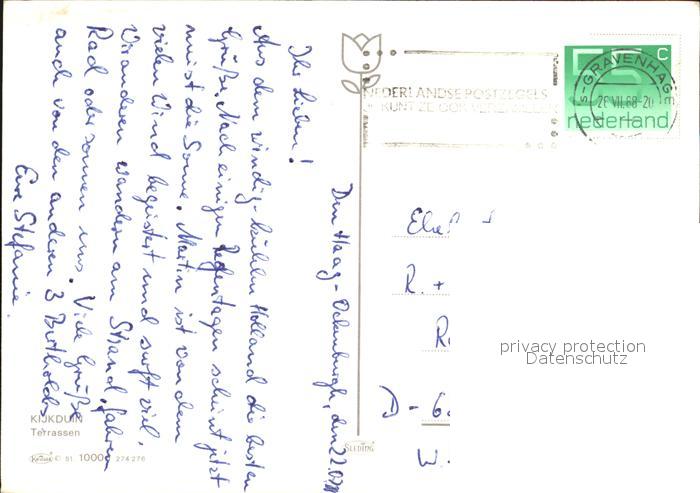 Den Haag-Ockenburgh, den 22.07.
Ihr Lieben!
Aus dem windig-kühlen Holland die besten
Grüße. Nach einigen Regentagen scheint jetzt
mist die Sonne. Martin ist von dem
vielen Wind begeistert und surft viel.
Wir anderen wandern am Strand, fahren
Rad oder sonnen uns. Viele Grüße
auch von den anderen 3 Bertholds
Eure Stefanie.
KIJKDUIN
Terrassen
Krüger © 51 1000 274 276
SLEDING
NEDERLANDSE POSTZEGELS
JE KUNT ZE OOK VERZAMELEN
'S-GRAVENHAGE
26.VII.88-20
55 c
nederland
R. +
D - 6
W.
privacy protection
Datenschutz